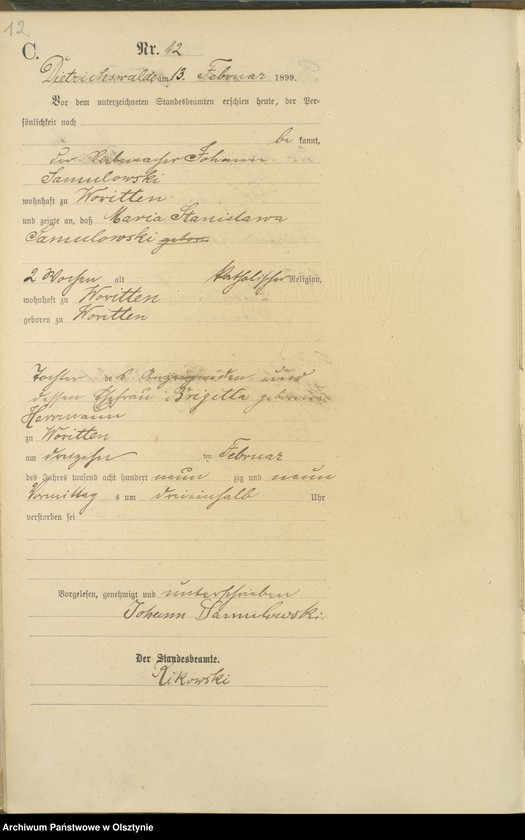 12
C.
Nr. 12
Dietrichswalde am 13. Februar 1899.
Vor dem unterzeichneten Standesbeamten erschien heute, der Per-
sönlichkeit nach
be kannt,
der Johann
Samulowski
wohnhaft zu Woritten
und zeigte an, daß Maria Stanislawa
Samulowski gebor.
2 Wochen alt katholischer Religion,
wohnhaft zu Woritten
geboren zu Woritten
Tochter des Anzeigenden und
dessen Ehefrau Brigitta geborenen
Herrmann
zu Woritten
am dreizehn ten Februar
des Jahres tausend acht hundert neun zig und neun
Vormittag s um dreieinhalb Uhr
verstorben sei
Vorgelesen, genehmigt und unterschrieben
Johann Samulowski.
Der Standesbeamte.
Rikowski
Archiwum Państwowe w Olsztynie